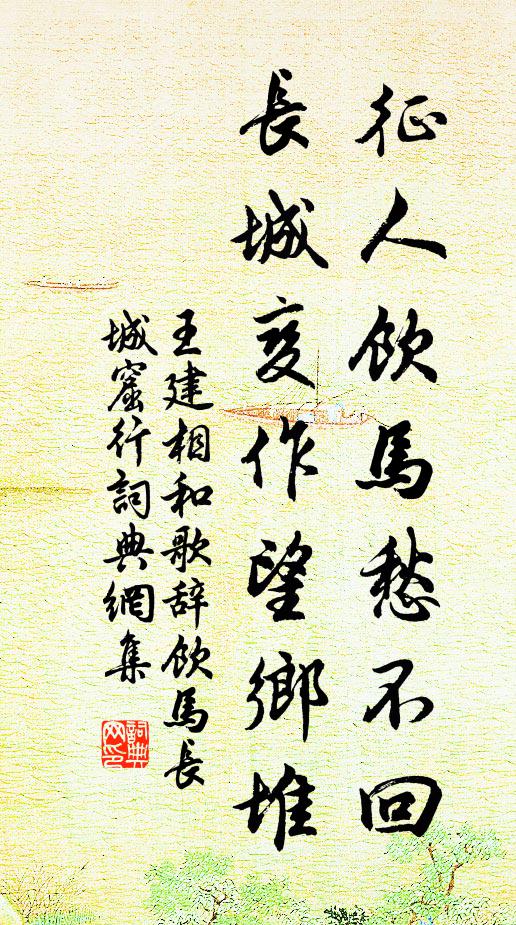 征人飲馬愁不回
長城变作望鄉堆
王建相和歌辞飲馬長
城窟行詞典網集
詞典
网印